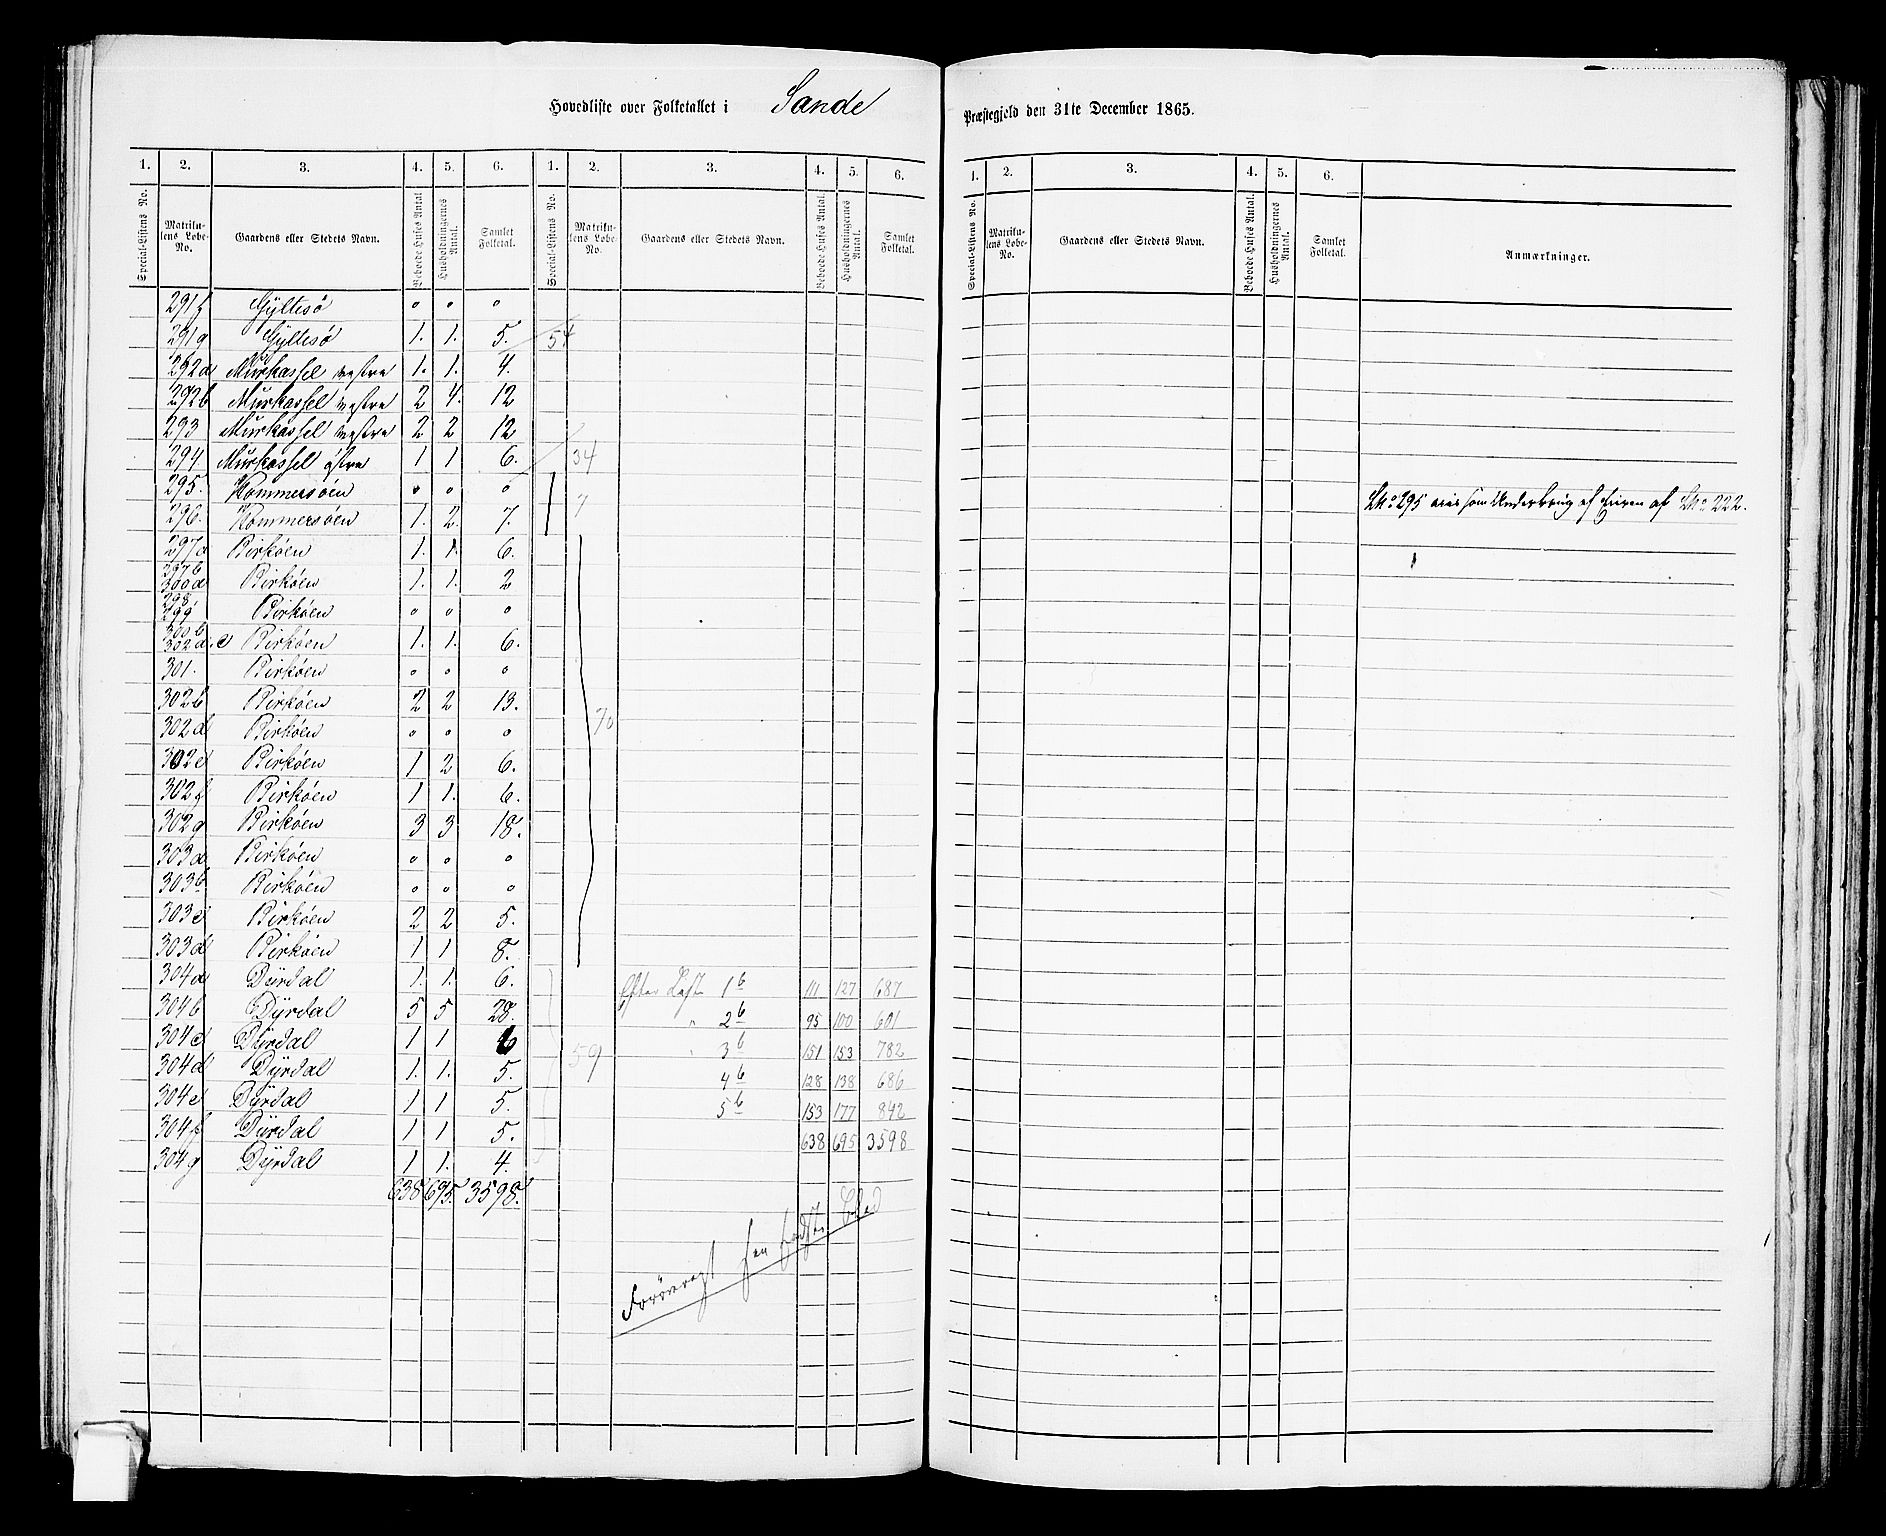 Hovedliste over Folketallet i Sande Præstegjeld den 31te December 1865.
1. 2. 3. 4. 5. 6. 1. 2. 3. 4. 5. 6. 1. 2. 3. 4. 5. 6.
Special-Listens No. Matrikulens Løbe-No. Gaardens eller Stedets Navn. Beboede Huses Antal. Husholdningernes Antal. Samlet Folketal. Special-Listens No. Matrikulens Løbe-No. Gaardens eller Stedets Navn. Beboede Huses Antal. Husholdningernes Antal. Samlet Folketal. Special-Listens No. Matrikulens Løbe-No. Gaardens eller Stedets Navn. Beboede Huses Antal. Husholdningernes Antal. Samlet Folketal. Anmærkninger.
291f Gyltesö 0 0 0
291g Gyltesö 1. 1. 5. 54
292a Murkassel vestre 1. 1. 4.
292b Murkassel vestre 2 4. 12
293 Murkassel vestre 2 2 12
294. Murkassel östre 1 1 6. 34
295. Kommersöen 0 0 0 7 L№ 295 som Underbrug af af L№ 222.
296. Kommersöen 1. 2. 7.
297a Birköen 1. 1. 6.
297b 300a Birköen 1. 1. 2
298 299 Birköen 0 0 0
300b 302a.c Birköen 1. 1. 6.
301. Birköen 0 0 0
302b Birköen 2 2 13. 70
302d Birköen 0 0 0
302e Birköen 1 2 6.
302f Birköen 1 1. 6.
302g Birköen 3 3 18.
303a Birköen 0 0 0
303b. Birköen 0 0 0
303c Birköen 2 2 5.
303d Birköen 1 1 8.
304a Dyrdal 1. 1. 6. Efter 1b 111 127 687
304b Dyrdal 5 5 28. " 2b 95 100 601
304c Dyrdal 1 1 6 59 " 3b 151 153 782
304d Dyrdal 1. 1. 5. 4b 128 138 686
304e Dyrdal 1 1 5. 5b 153 177 842
304f Dyrdal 1 1 5. 638 695 3598
304g Dyrdal 1 1. 4.
638 695. 3598.
Blad